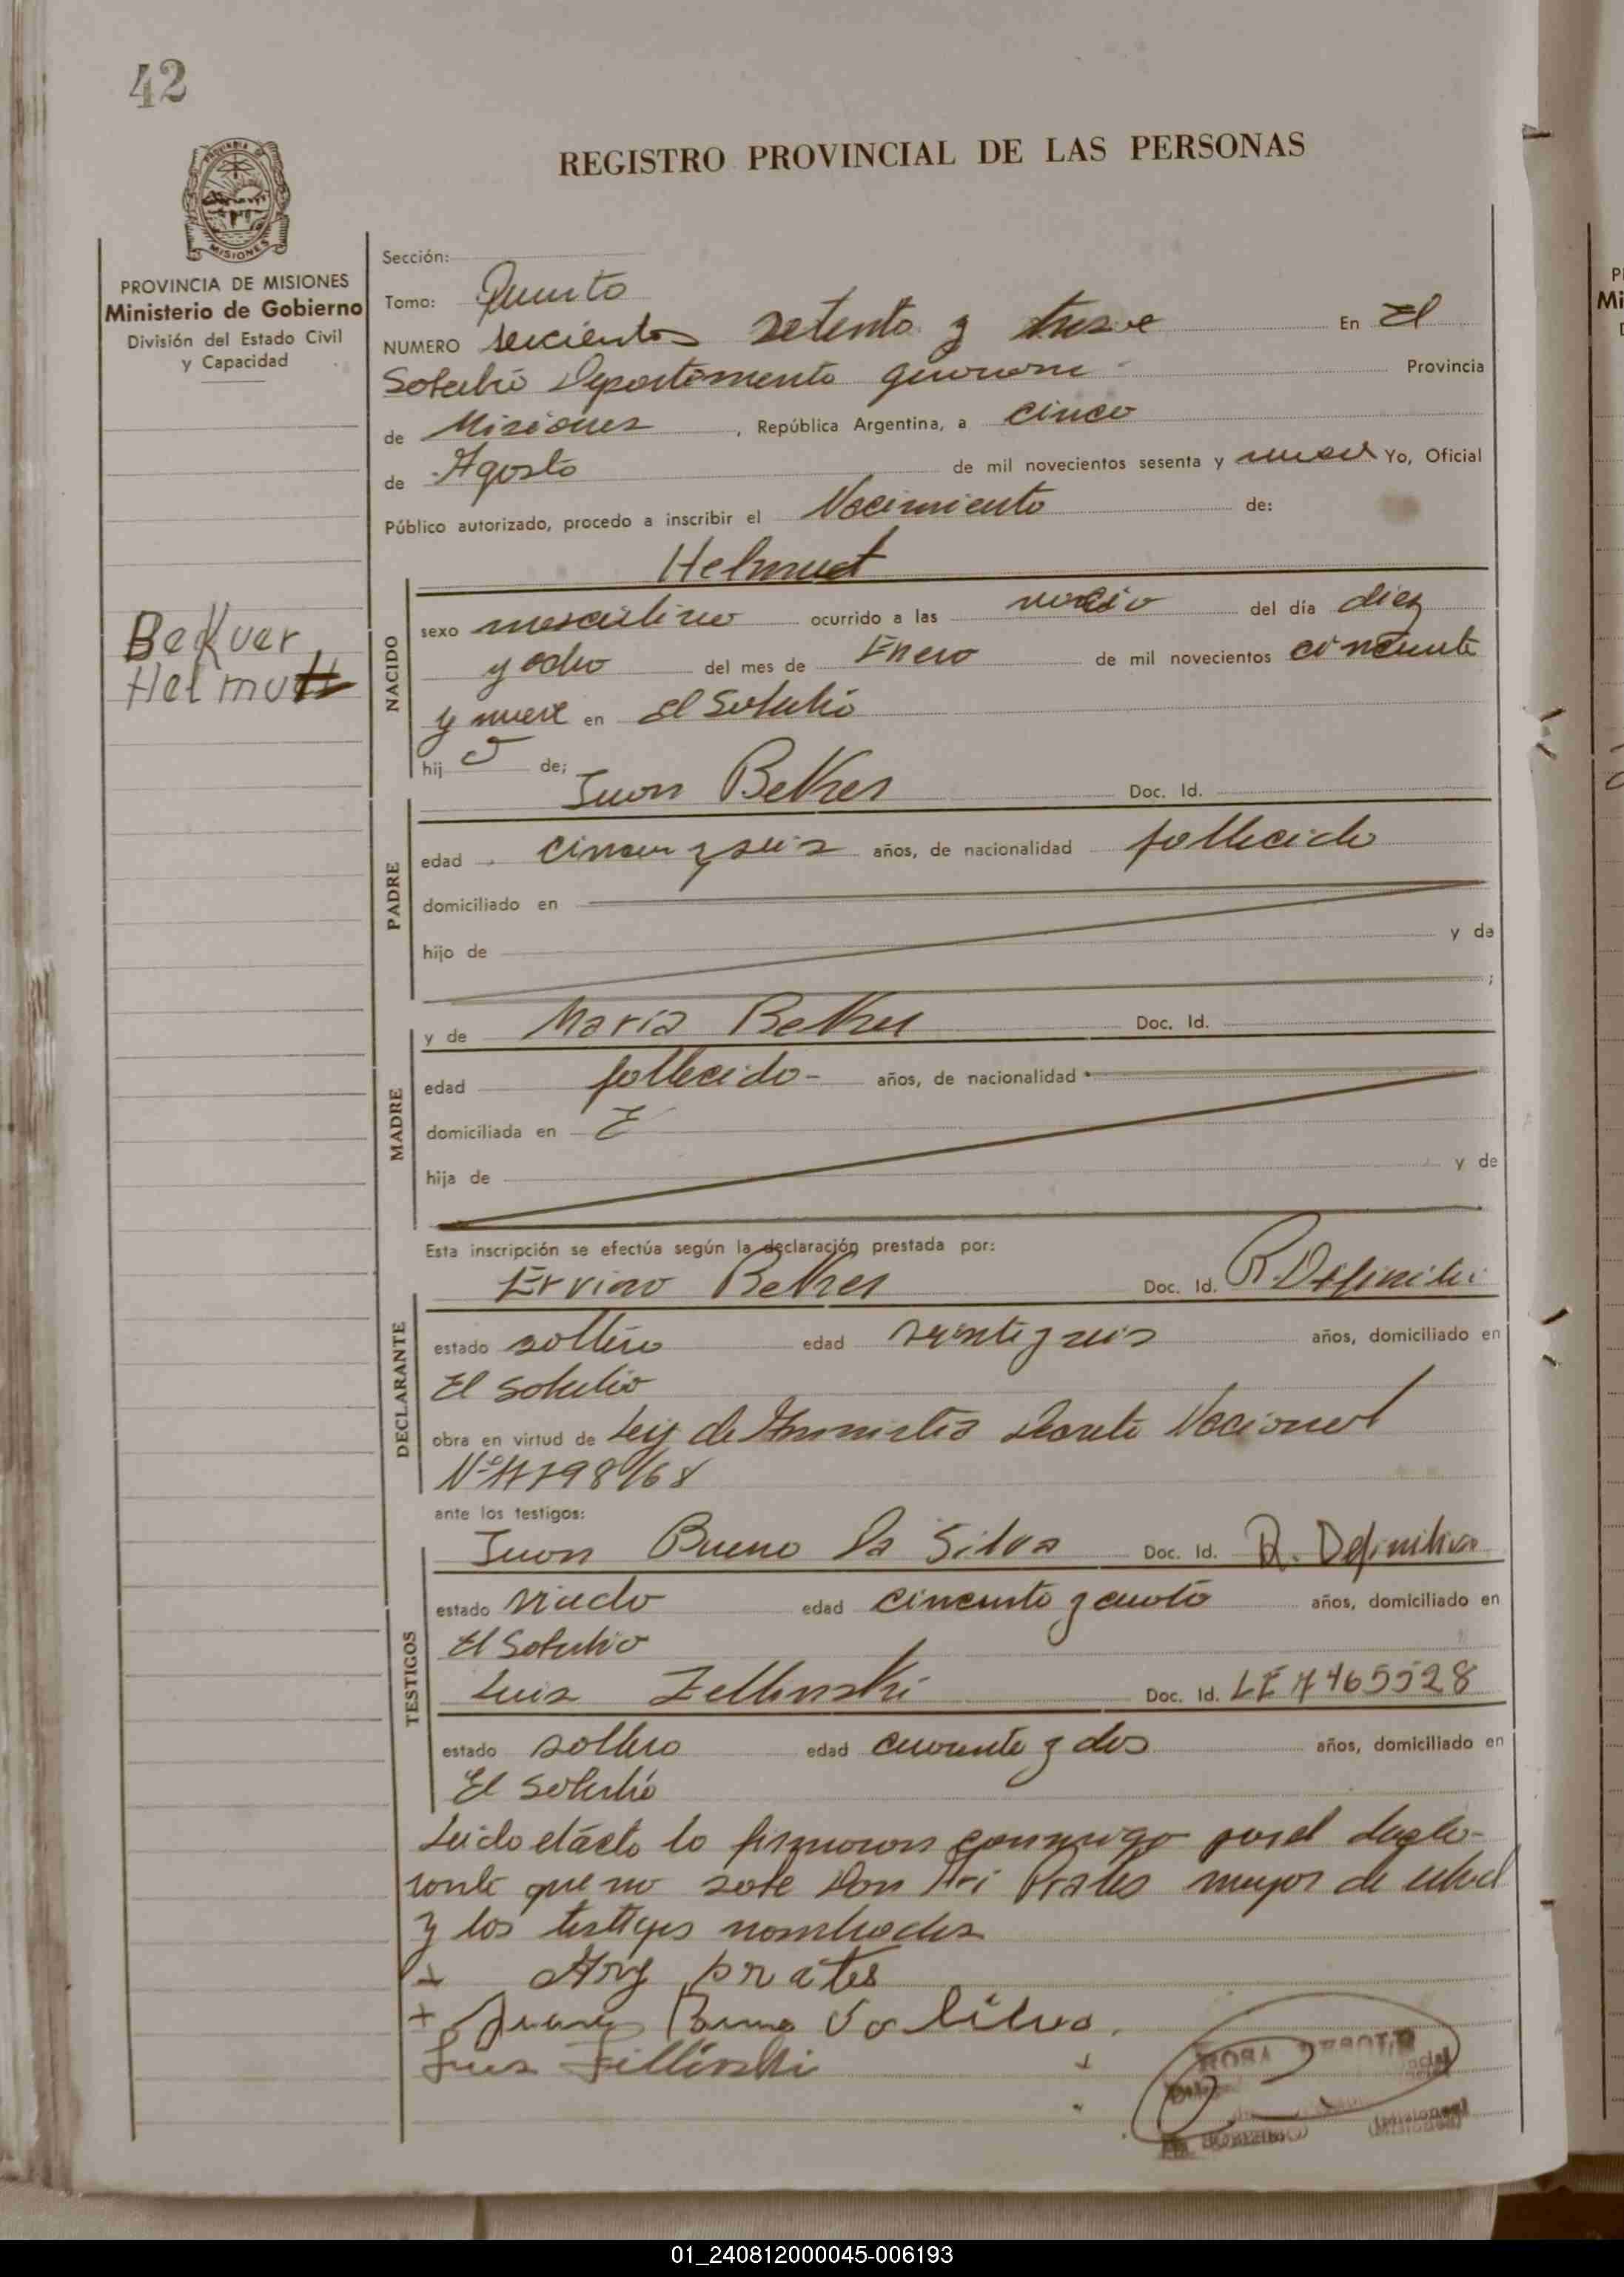 42
REGISTRO PROVINCIAL DE LAS PERSONAS
PROVINCIA DE MISIONES
Ministerio de Gobierno
División del Estado Civil
y Capacidad
Sección:
Tomo: Quinto
NUMERO seicientos setenta y En El
Soberbio Departamento guarani Provincia
de Misiones , República Argentina, a cinco
de Agosto de mil novecientos sesenta y nueve Yo, Oficial
Público autorizado, procedo a inscribir el Nacimiento de:
Helmut
Bekuer
Helmutt
NACIDO
sexo masculino ocurrido a las del día diez
y ocho del mes de Enero de mil novecientos cincuenta
y nueve en El Soberbio
hij o de;
Juan Beker Doc. Id.
PADRE
edad años, de nacionalidad fallecido
domiciliado en
hijo de y de
;
y de Maria Beker Doc. Id.
MADRE
edad fallecido - años, de nacionalidad
domiciliada en
hija de y de
Esta inscripción se efectúa según la declaración prestada por:
Ervino Beker Doc. Id. R. Definitiv
DECLARANTE
estado soltero edad veinte y seis años, domiciliado en
El Soberbio
obra en virtud de Ley de Amnistia Decreto Nacional
Nº 17798/68
ante los testigos:
Juan Bueno Da Silva Doc. Id. R. Definitivo
TESTIGOS
estado viudo edad cincuenta y cuatro años, domiciliado en
El Soberbio
Luis Zellinski Doc. Id. LE 7465528
estado soltero edad cuarenta y dos años, domiciliado en
El Soberbio
Leido el ácto lo firmaron conmigo por el decla-
rante que no sabe Don Ari Prates mayor de edad
y los testigos nombrados
+ Ary prates
+ Juan Bueno da Silva.
Luis Zillinski +
ROSA
(Misiones)
01_240812000045-006193